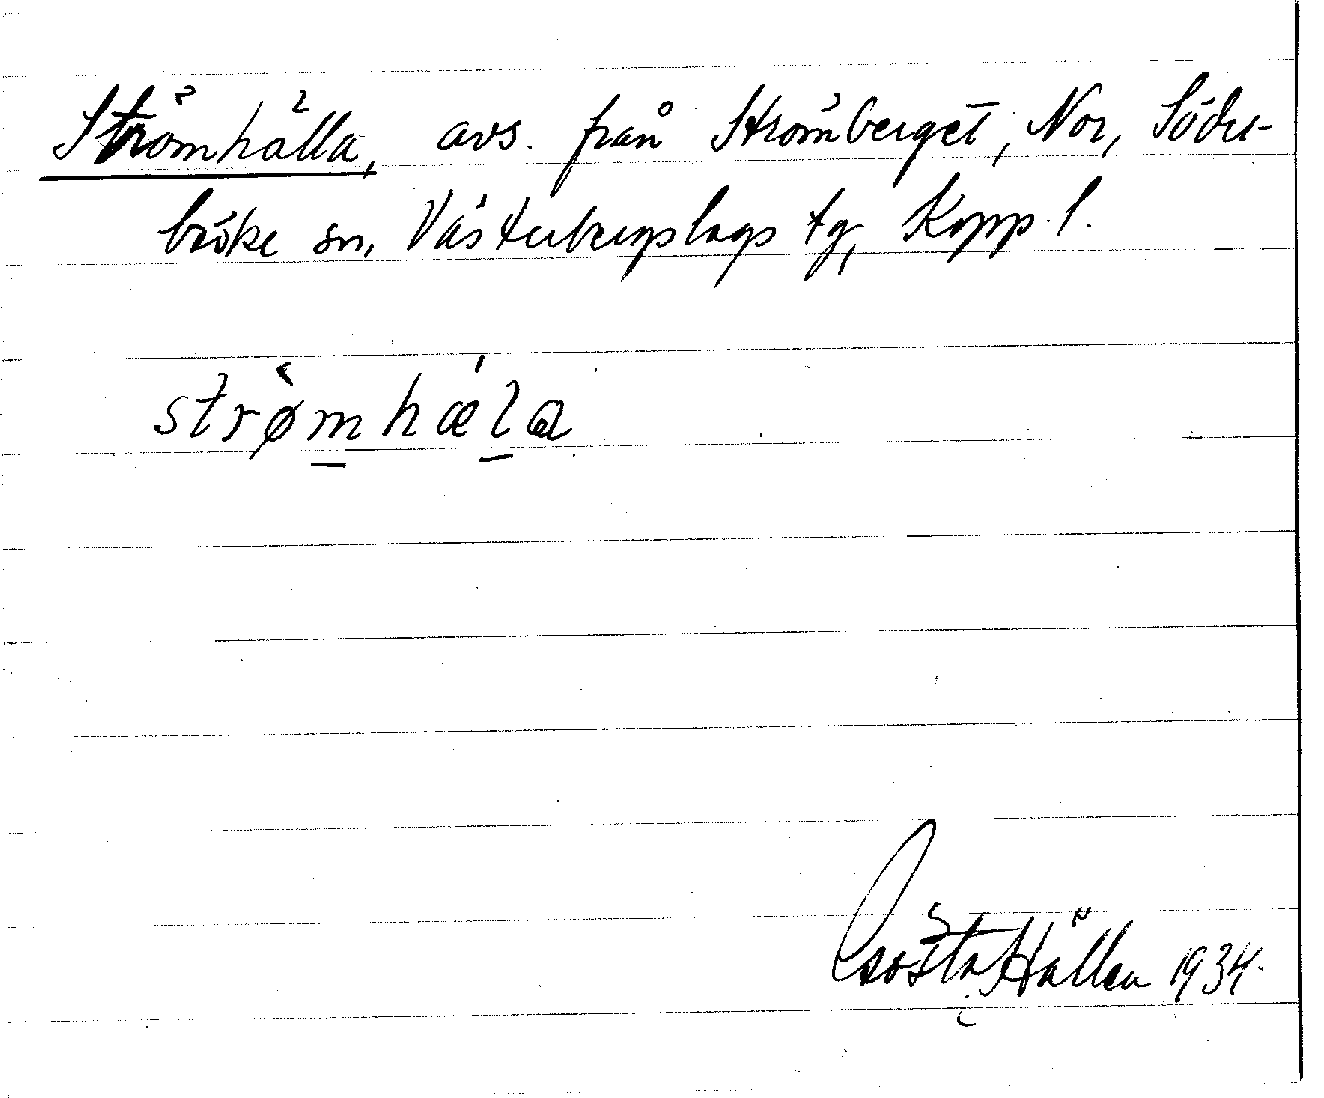 Strömhälla, avs. från Strömberget, Nor, Söder-
bärke sn, Västerbergslags tg, Kopp. l.
strø̀mhæ̀la
Gösta Hällen 1934.